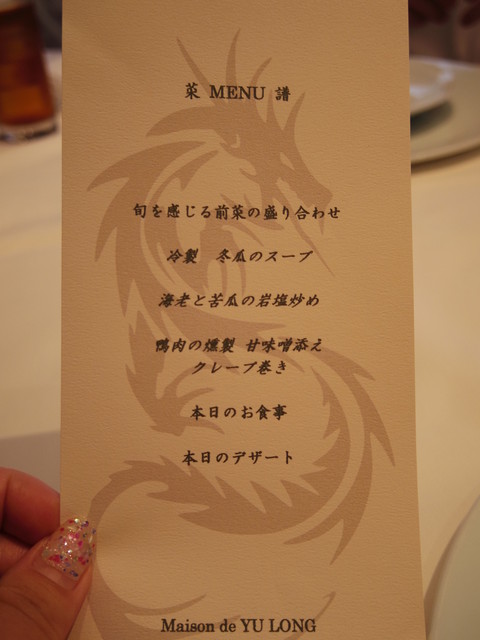 菜 MENU 譜
旬を感じる前菜の盛り合わせ
冷製 冬瓜のスープ
海老と苦瓜の岩塩炒め
鴨肉の燻製 甘味噌添え
クレープ巻き
本日のお食事
本日のデザート
Maison de YU LONG